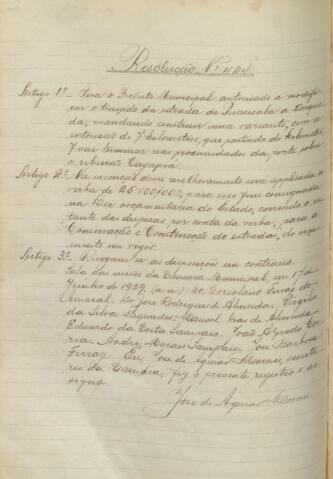 Resolução Nº 484
Artigo 1º Fica o Prefeito Municipal autorisado a modifi-
car o traçado da estrada de Piracicaba a Tanqui-
nho, mandando construir uma variante, com a
extensão de 7 kilometros, que partindo do kilometro
7 vae terminar nas proximidades da ponte sobre
o ribeirão
Artigo 2º Na execução deste melhoramento será applicada a
verba de 25:000$000, para esse fim consignada
na Lei orçamentaria do Estado, correndo o res-
tante das despesas por conta da verba, para a
Conservação e Construcção de estradas, do orça-
mento em vigor.
Artigo 3º Revogam-se as disposições em contrario.
Sala das sessões da Camara Municipal, em 17 de
Junho de 1929. (a.a.) Dr. Coriolano Ferraz do
Amaral. Dr. José Rodrigues de Almeida. Virgilio
da Silva Fagundes. Manoel de Almeida
Eduardo da Costa Sampaio. João Alfredo
André Moraes Sampaio. José Barbosa
Ferraz. Eu, José de Aguiar Moraes, secreta-
rio da Camara, fiz o presente registro e as-
signo.
José de Aguiar Moraes